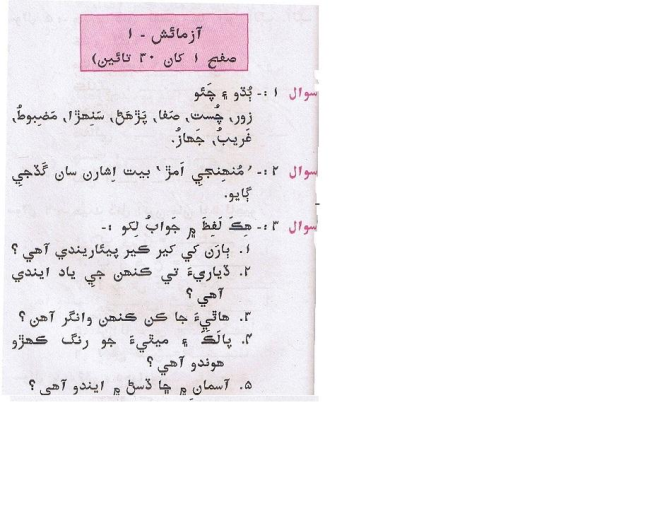 آزمائش - ۱
صفح ۱ کان ۳۰ تائين)
سوال ۱ :- ٻُڌو ۽ چَئو
زور، چُست، صَفا، پَڙهَڻُ، سَنِهڙا، مَضبوطُ،
غَريبُ، جَهازُ.
سوال ۲ :- ’مُنهِنجيِ اَمڙ‘ بيت اِشارن سان گَڏجيِ
ڳايو.
سوال ۳ :- هِڪَ لَفِظَ ۾ جَوابُ لِکو :-
۱. ٻارَن کي کير ڪير پيئاريندي آهي ؟
۲. ڏياريءَ تي ڪنهن جي ياد ايندي
آهي ؟
۳. هاٿيءَ جا ڪن ڪنهن وانگر آهن ؟
۴. پالَڪَ ۽ ميٿيءَ جو رنگ ڪهڙو
هوندو آهي ؟
۵. آسمانِ ۾ ڇا ڏسڻ ۾ ايندو آهي ؟